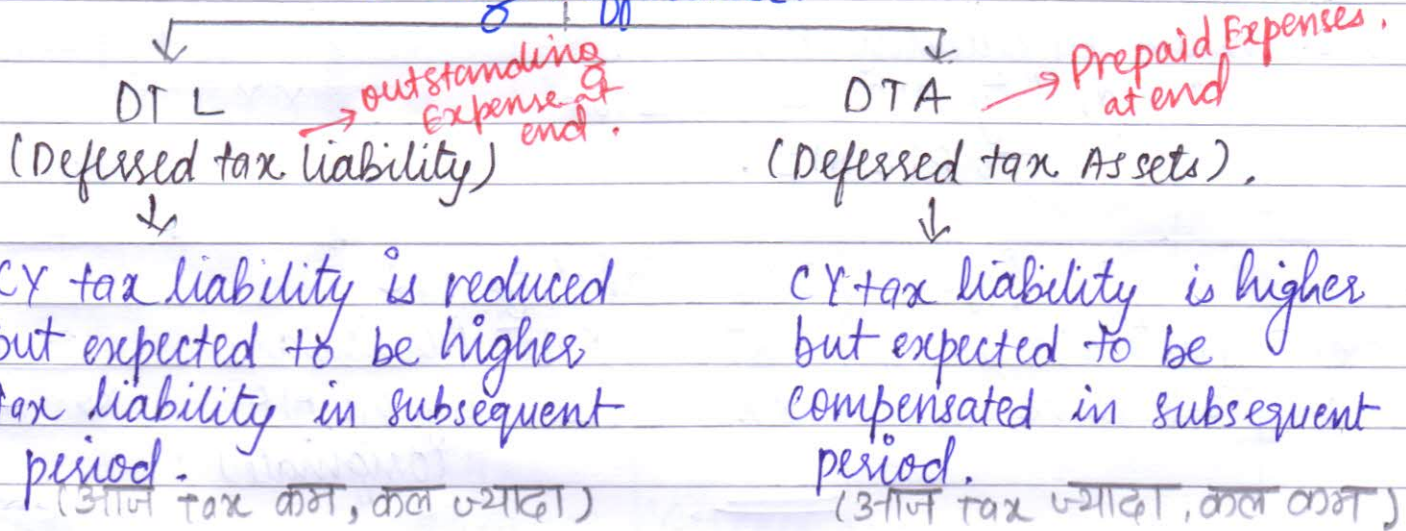 DTL
→ outstanding
Expense at
end.
(Deferred tax liability)
CY tax liability is reduced
but expected to be higher
tax liability in subsequent
period.
(आज tax कम, कल ज्यादा)
DTA
→ Prepaid Expenses.
at end
(Deferred tax Assets).
CY tax liability is higher
but expected to be
compensated in subsequent
period.
(आज tax ज्यादा, कल कम)